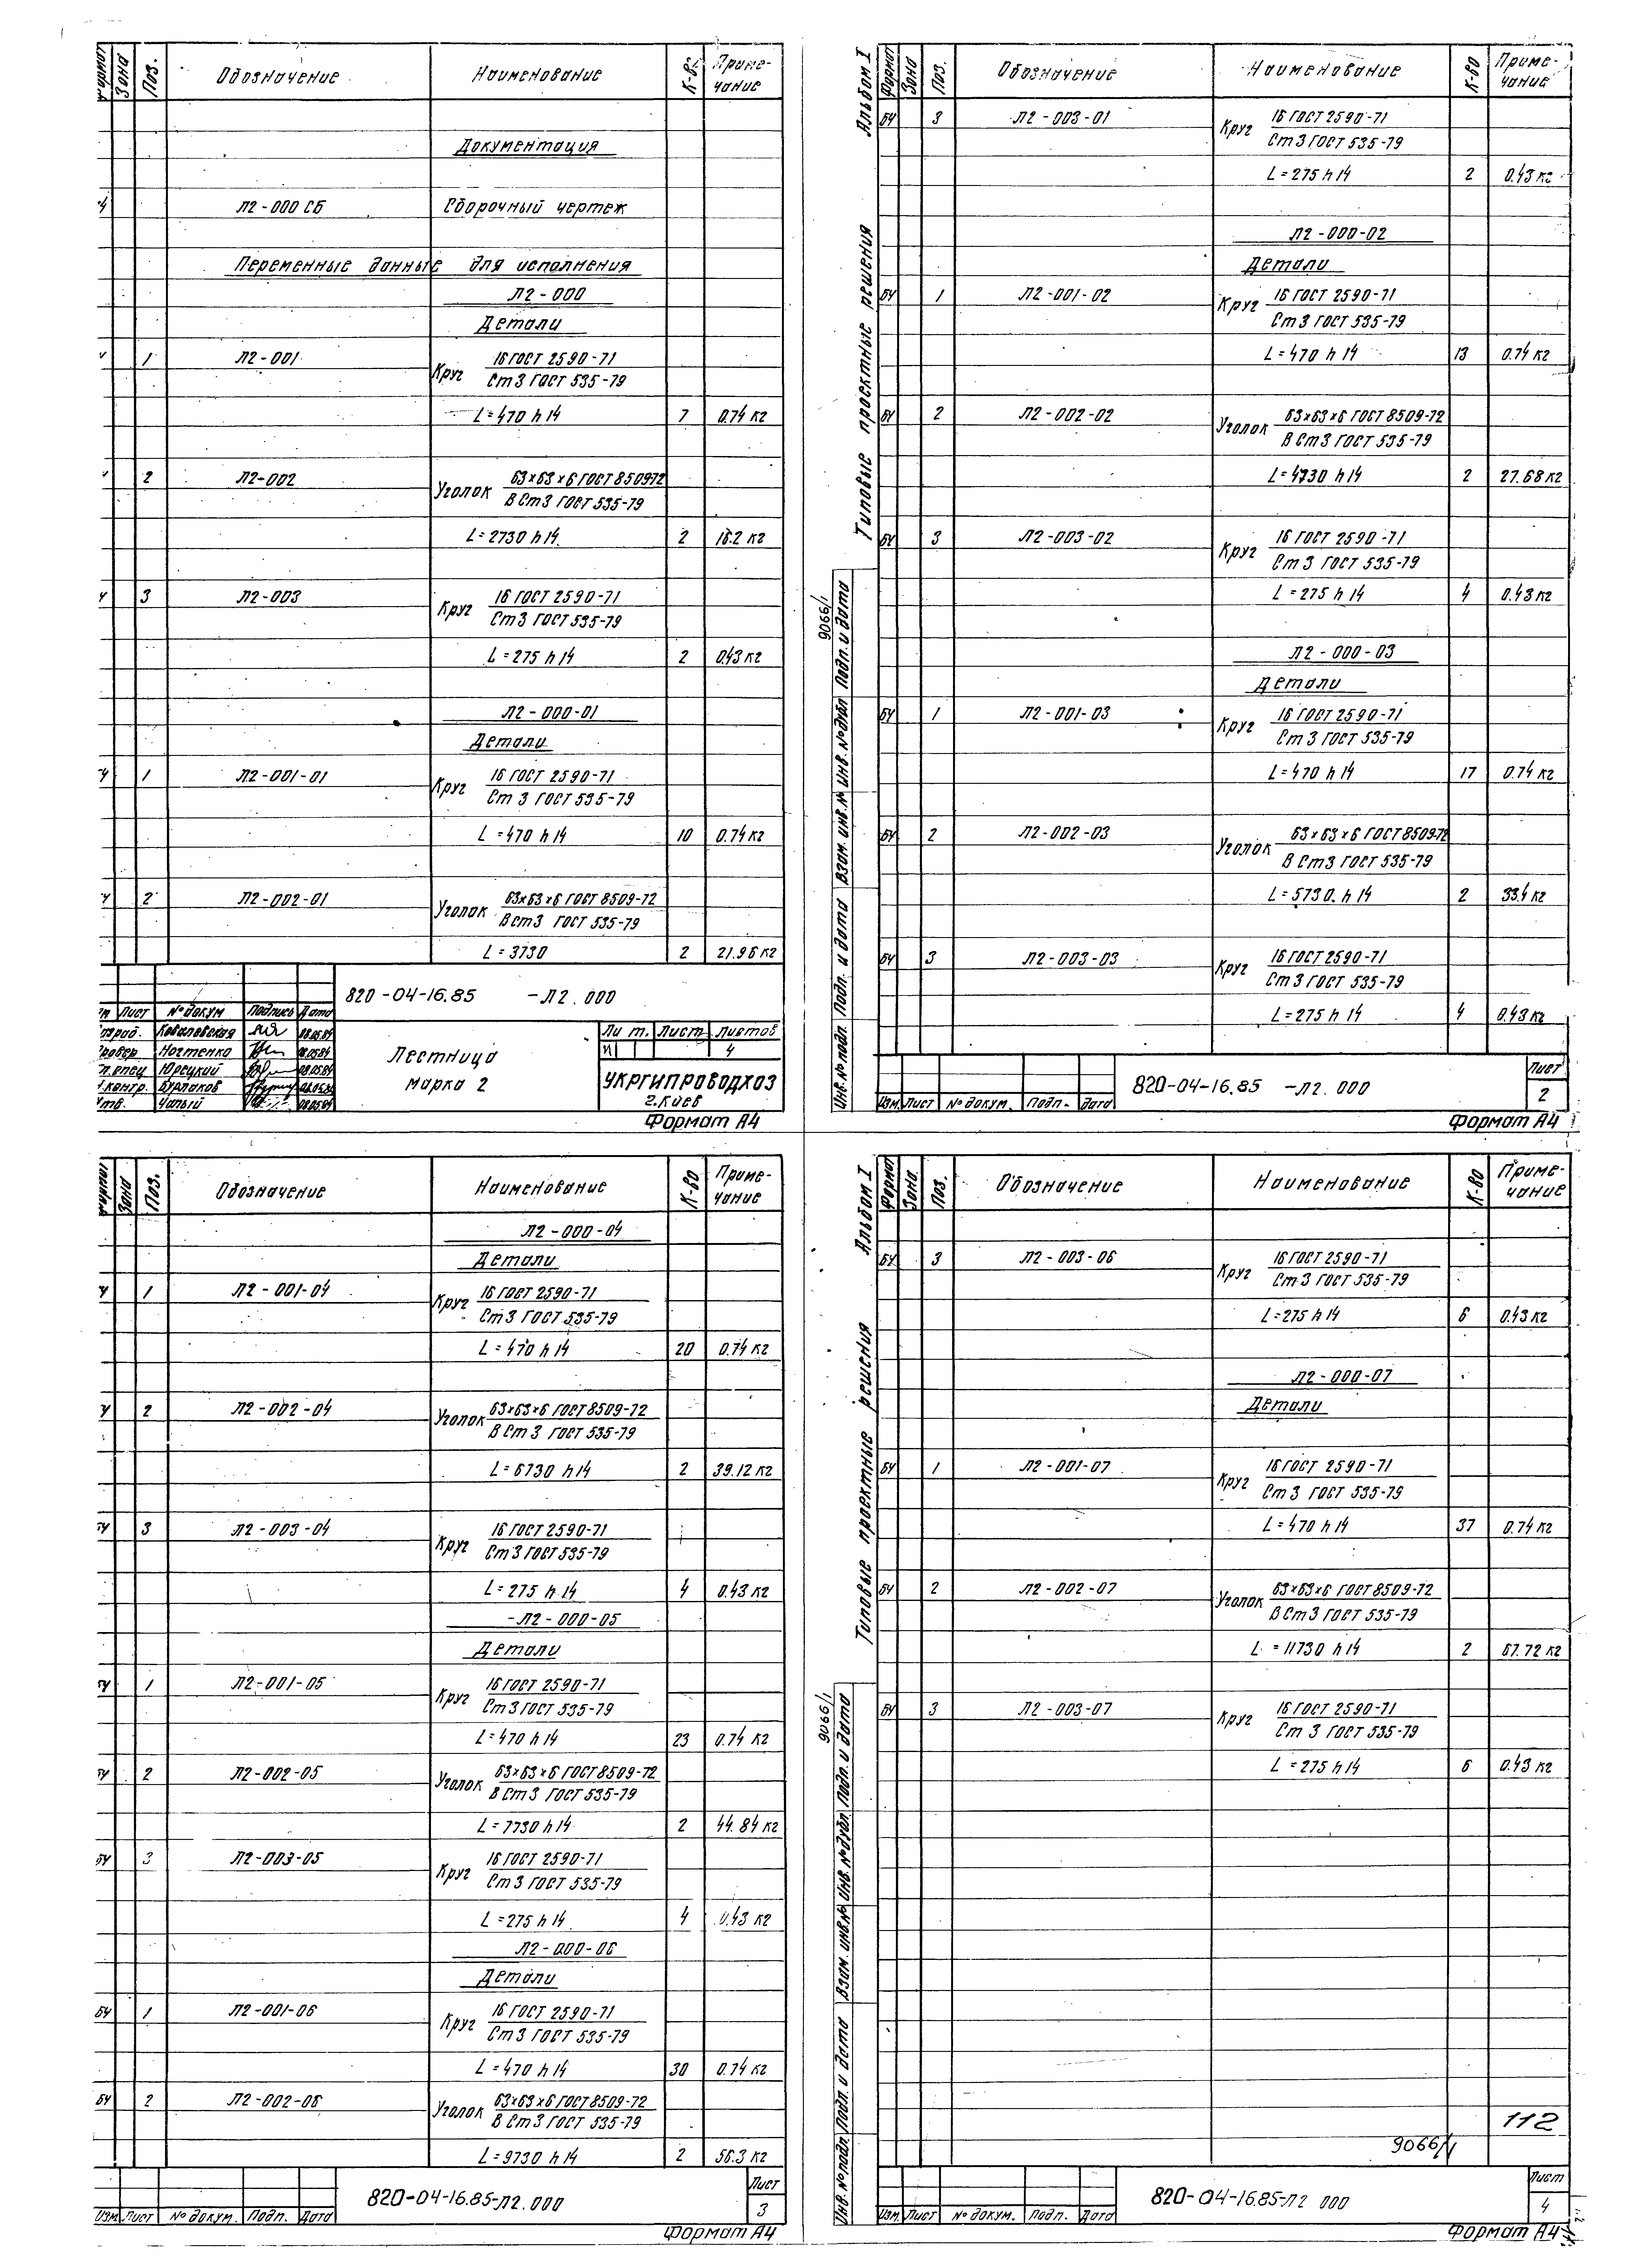 Формат Зона Поз. Обозначение Наименование К-во Приме-
чание
Документация
Л2-000 СБ Сборочный чертеж
Переменные данные для исполнения
Л2-000
Детали
1 Л2-001 Круг 16 ГОСТ 2590-71
Ст3 ГОСТ 535-79
L=470 h14 7 0.74 кг
2 Л2-002 Уголок 63х63х6 ГОСТ 8509-72
В Ст3 ГОСТ 535-79
L=2730 h14 2 16.2 кг
3 Л2-003 Круг 16 ГОСТ 2590-71
Ст3 ГОСТ 535-79
L=275 h14 2 0.43 кг
Л2-000-01
Детали
1 Л2-001-01 Круг 16 ГОСТ 2590-71
Ст 3 ГОСТ 535-79
L=470 h14 10 0.74 кг
2 Л2-002-01 Уголок 63х63х6 ГОСТ 8509-72
В ст3 ГОСТ 535-79
L=3730 2 21.96 кг
820-04-16.85 -Л2.000
Лист № докум Подпись Дата
Разраб. Ковалевская 08.05.84
Провер Ногтенко 08.05.84
Гл.спец Юрецкий 08.05.84
Н.контр. Бурлаков 08.05.84
Утв. Чалый 08.05.84
Лестница
марка 2
Лит. Лист Листов
И 4
УКРГИПРОВОДХОЗ
г. Киев
Формат А4
Альбом I
Типовые проектные решения
9066/1
Инв. № подл. Подп. и дата Взам. инв. № Инв. № дубл Подп. и дата
Формат Зона Поз. Обозначение Наименование К-во Приме-
чание
БЧ 3 Л2-003-01 Круг 16 ГОСТ 2590-71
Ст 3 ГОСТ 535-79
L=275 h14 2 0.43 кг
Л2-000-02
Детали
БЧ 1 Л2-001-02 Круг 16 ГОСТ 2590-71
Ст 3 ГОСТ 535-79
L=470 h14 13 0.74 кг
БЧ 2 Л2-002-02 Уголок 63х63х6 ГОСТ 8509-72
В Ст3 ГОСТ 535-79
L=4730 h14 2 27.68 кг
БЧ 3 Л2-003-02 Круг 16 ГОСТ 2590-71
Ст 3 ГОСТ 535-79
L=275 h14 4 0.43 кг
Л2-000-03
Детали
БЧ 1 Л2-001-03 Круг 16 ГОСТ 2590-71
Ст 3 ГОСТ 535-79
L=470 h14 17 0.74 кг
БЧ 2 Л2-002-03 Уголок 63х63х6 ГОСТ 8509-72
В Ст3 ГОСТ 535-79
L=5730. h14 2 33.4 кг
БЧ 3 Л2-003-03 Круг 16 ГОСТ 2590-71
Ст3 ГОСТ 535-79
L=275 h14 4 0.43 кг
820-04-16.85 -Л2.000
Лист
2
Изм. Лист № докум. Подп. Дата
Формат А4
Формат Зона Поз. Обозначение Наименование К-во Приме-
чание
Л2-000-04
Детали
1 Л2-001-04 Круг 16 ГОСТ 2590-71
Ст3 ГОСТ 535-79
L=470 h14 20 0.74 кг
2 Л2-002-04 Уголок 63х63х6 ГОСТ 8509-72
В Ст3 ГОСТ 535-79
L=6730 h14 2 39.12 кг
БЧ 3 Л2-003-04 Круг 16 ГОСТ 2590-71
Ст3 ГОСТ 535-79
L=275 h14 4 0.43 кг
-Л2-000-05
Детали
БЧ 1 Л2-001-05 Круг 16 ГОСТ 2590-71
Ст3 ГОСТ 535-79
L=470 h14 23 0.74 кг
БЧ 2 Л2-002-05 Уголок 63х63х6 ГОСТ 8509-72
В Ст3 ГОСТ 535-79
L=7730 h14 2 44.84 кг
БЧ 3 Л2-003-05 Круг 16 ГОСТ 2590-71
Ст3 ГОСТ 535-79
L=275 h14 4 0.43 кг
Л2-000-06
Детали
БЧ 1 Л2-001-06 Круг 16 ГОСТ 2590-71
Ст3 ГОСТ 535-79
L=470 h14 30 0.74 кг
БЧ 2 Л2-002-06 Уголок 63х63х6 ГОСТ 8509-72
В Ст3 ГОСТ 535-79
L=9730 h14 2 56.3 кг
820-04-16.85-Л2.000
Лист
3
Изм. Лист № докум. Подп. Дата
Формат А4
Альбом I
Типовые проектные решения
9066/1
Инв. № подл. Подп. и дата Взам. инв. № Инв. № дубл. Подп. и дата
Формат Зона. Поз. Обозначение Наименование К-во Приме-
чание
БЧ 3 Л2-003-06 Круг 16 ГОСТ 2590-71
Ст 3 ГОСТ 535-79
L=275 h14 6 0.43 кг
Л2-000-07
Детали
БЧ 1 Л2-001-07 Круг 16 ГОСТ 2590-71
Ст 3 ГОСТ 535-79
L=470 h14 37 0.74 кг
БЧ 2 Л2-002-07 Уголок 63х63х6 ГОСТ 8509-72
В Ст3 ГОСТ 535-79
L=11730 h14 2 67.72 кг
БЧ 3 Л2-003-07 Круг 16 ГОСТ 2590-71
Ст 3 ГОСТ 535-79
L=275 h14 6 0.43 кг
112
9066/1
820-04-16.85-Л2 000
Лист
4
Изм. Лист № докум. Подп. Дата
Формат А4